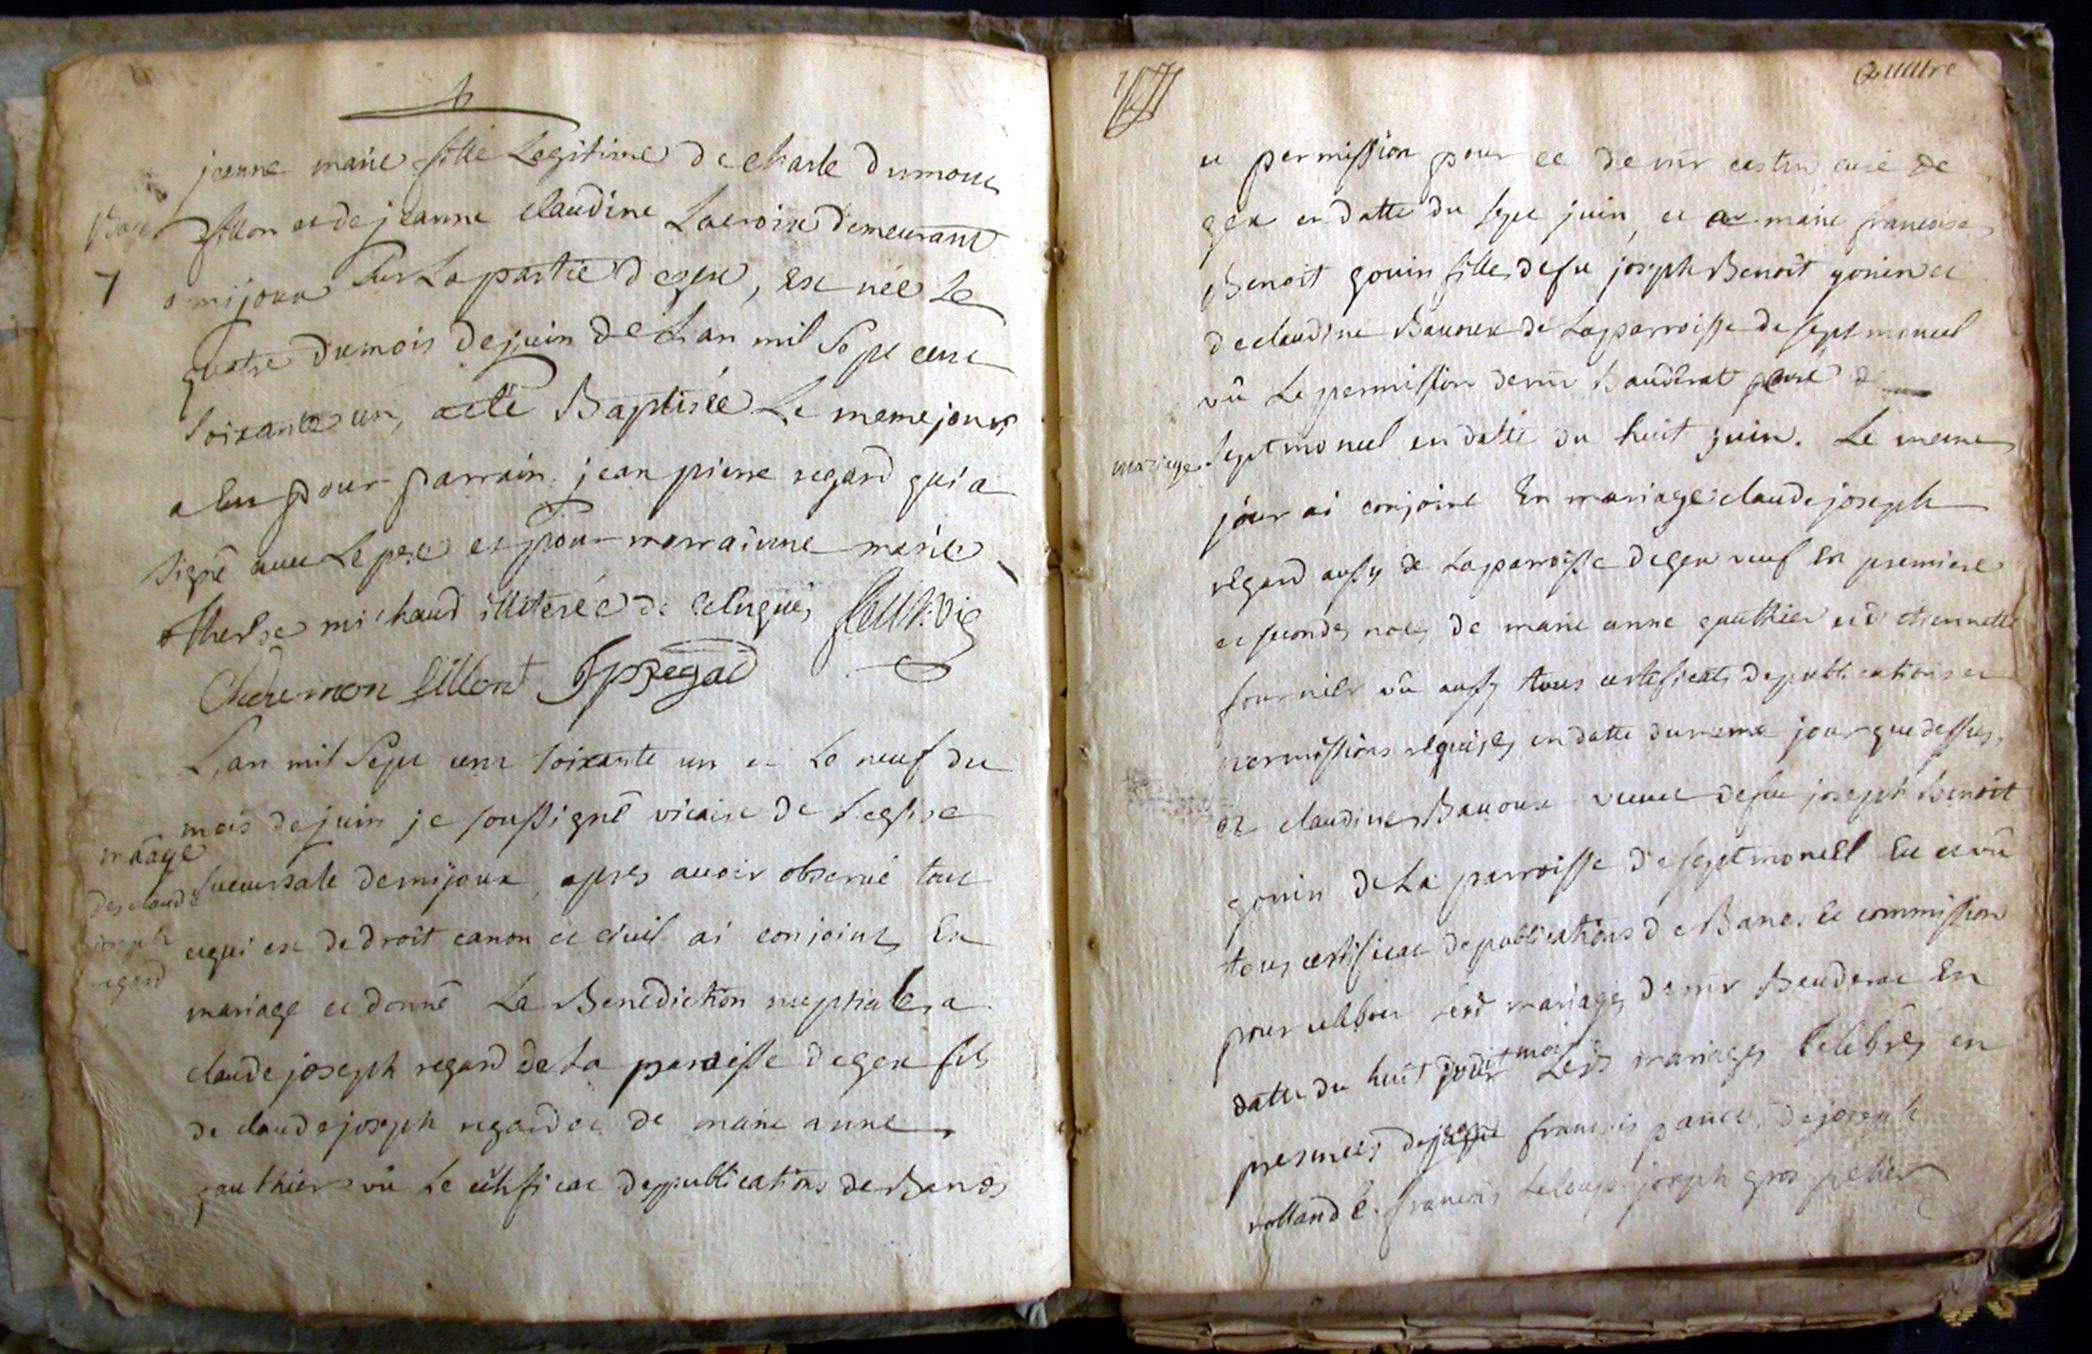 jeanne marie fille Legitime de charle dumont
fillon et de jeanne claudine Lacroix demeurant
a mijoux sur La partie de gex, est née Le
quatre du mois de juin de L'an mil Sept cent
soixante un, a été Baptisée Le meme jour
a Eu pour parrain jean pierre regard qui a
signé avec Le pere et pour marraine marie
therese michaud illiterée de
fillont JPRegad
L'an mil Sept cent soixante un et Le neuf du
mois de juin je soussigné vicaire de L'eglise
mãage
des claude
joseph
regard
succursale de mijoux, apres avoir observé tout
ce qui est de droit canon et civil ai conjoint En
mariage et donné La Benediction nuptiale a
claude joseph regard de La paroisse de gex fils
de claude joseph regard et de marie anne
gauthier vû Le certificat de publications de Bands
quattre
et permission pour ce de mr curé de
gex en datte du sept juin, et a marie francoise
Benoit gonin fille de fu joseph Benoit gonin et
de claudine Bauoux de La parroisse de sept moncel
vû La permission de mr Bauderat curé de
mariage
Septmoncel en datte du huit juin. Le meme
jour ai conjoint En mariage claude joseph
regard aussy de La parroisse de gex veuf En premiere
et secondes noces de marie anne gauthier et d'etiennette
fournier vû aussy tous certificats de publications et
permissions requises en datte du meme jour que dessus,
et claudine Bauoux veuve de fu joseph Benoit
gonin de La parroisse de Septmoncel Eu et vû
tous certificat de publications de Bans. Et commission
pour celebrer Led mariages de mr Bauderat En
datte du huit dudit mois Lesd mariages Celebrés en
presences de francois de joseph
rolland francois joseph gros